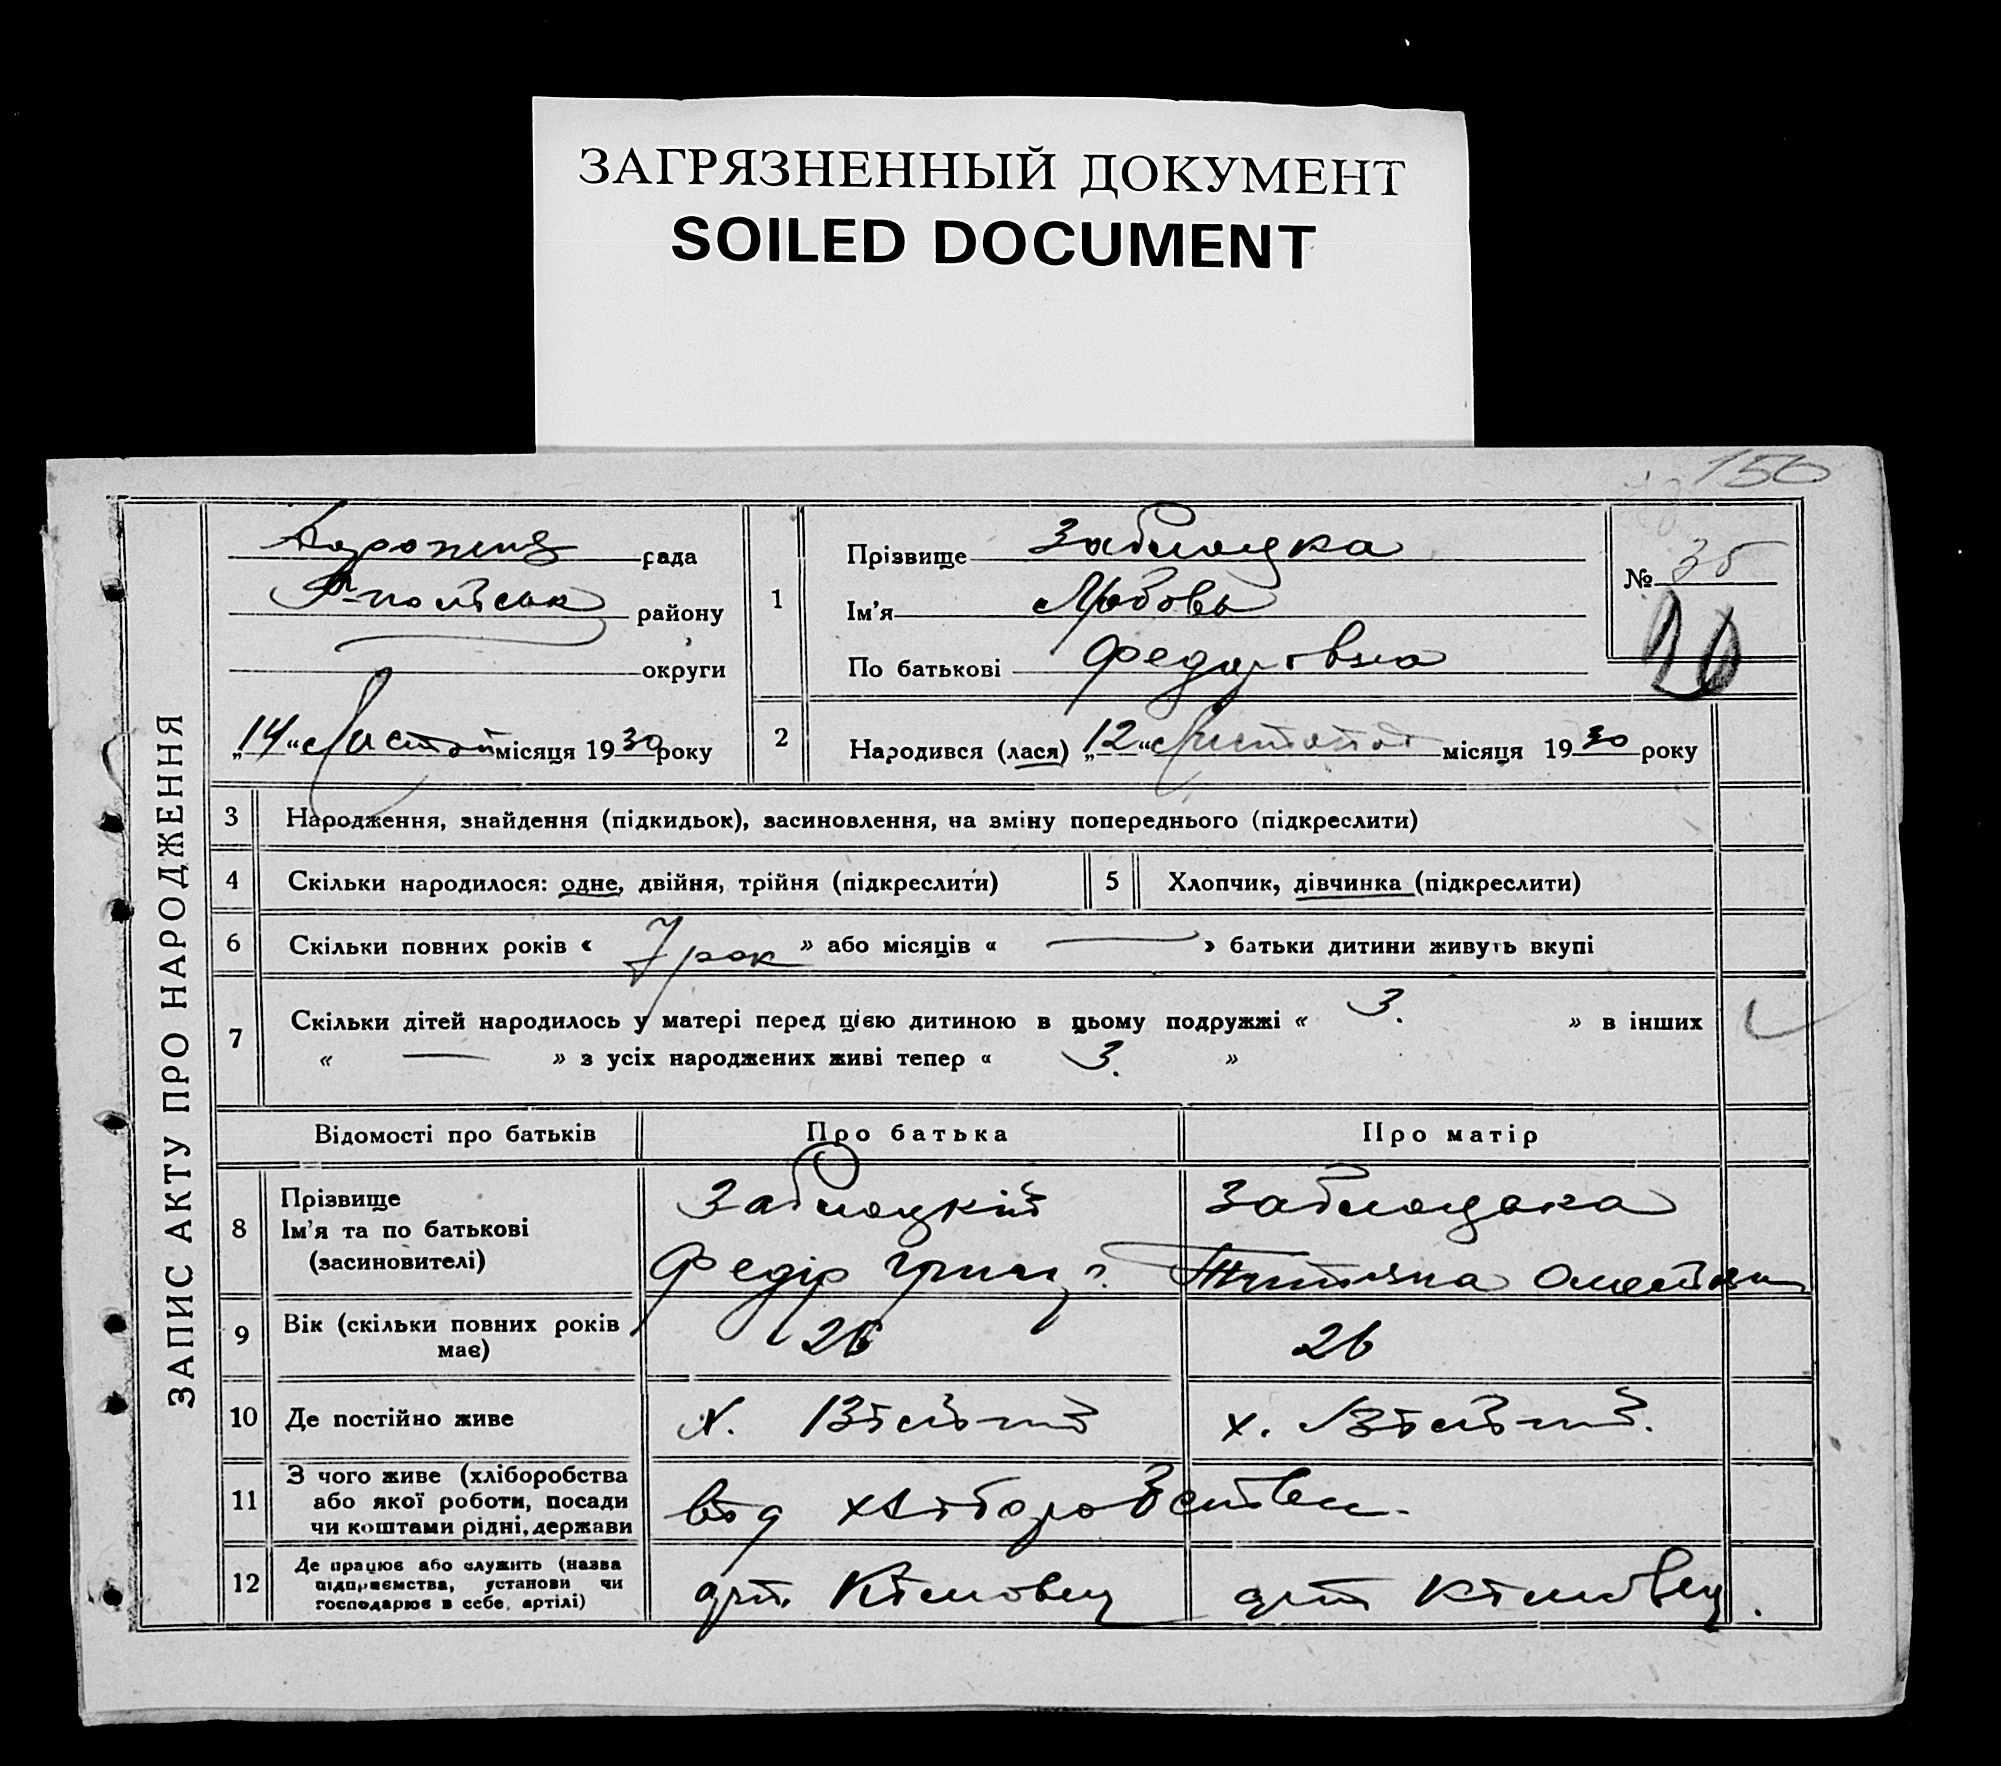 ЗАГРЯЗНЕННЫЙ ДОКУМЕНТ
SOILED DOCUMENT
150
ЗАПИС АКТУ ПРО НАРОДЖЕННЯ
рада
району
округи
„14“ Листоп місяця 1930 року
1
Прізвище Заблоцка
Ім'я Любовь
По батькові Федоровна
№ 35
10
2 Народився (лася) „12“ Листопад місяця 1930 року
3 Народження, знайдення (підкидьок), засиновлення, на зміну попереднього (підкреслити)
4 Скільки народилося: одне, двійня, трійня (підкреслити)
5 Хлопчик, дівчинка (підкреслити)
6 Скільки повних років « 7 рок » або місяців « — » батьки дитини живуть вкупі
7 Скільки дітей народилось у матері перед цією дитиною в цьому подружжі « 3. » в інших
« — » з усіх народжених живі тепер « 3. »
Відомості про батьків Про батька Про матір
8
Прізвище
Ім'я та по батькові
(засиновителі)
Заблоцкій
Федір
Заблоцька
9
Вік (скільки повних років
має)
26
26
10 Де постійно живе
х.
х.
11
З чого живе (хліборобства
або якої роботи, посади
чи коштами рідні, держави
від хліборобства
12
Де працює або служить (назва
підприємства, установи чи
господарює в себе, артілі)